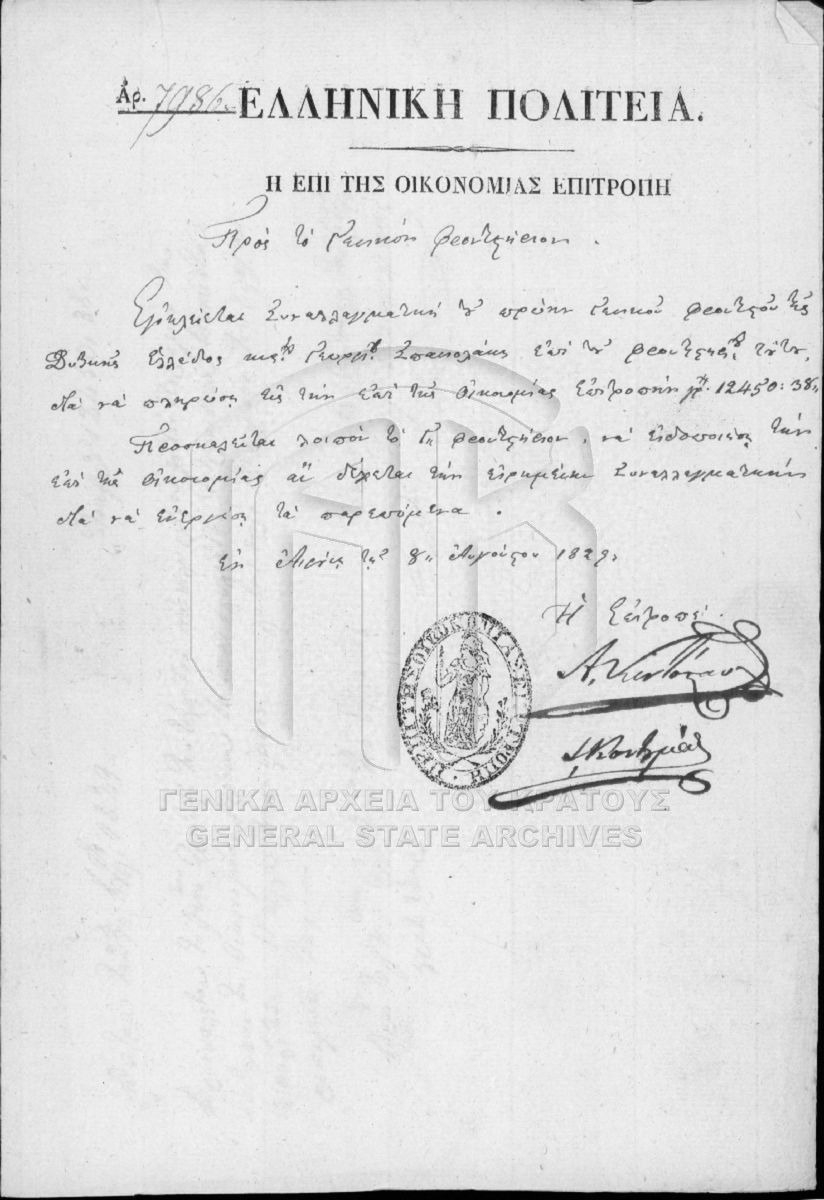 Ἀρ. 7986. ΕΛΛΗΝΙΚΗ ΠΟΛΙΤΕΙΑ.
Η ΕΠΙ ΤΗΣ ΟΙΚΟΝΟΜΙΑΣ ΕΠΙΤΡΟΠΗ
Πρὸς τὸ Γενικὸν Φροντιστήριον.
Ἐγκλείεται Συναλλαγματικὴ τοῦ πρώην Γενικοῦ Φροντιστοῦ τῆς
Δυτικῆς Ἑλλάδος Γεωργ ἐπὶ τοῦ Φροντιστηρ τούτου,
διὰ νὰ πληρώσῃ εἰς τὴν ἐπὶ τῆς Οἰκονομίας Ἐπιτροπὴν γρ. 12450:38„
Προσκαλεῖται λοιπὸν τὸ Γ„ Φροντιστήριον, νὰ εἰδοποιήσῃ τὴν
ἐπὶ τῆς Οἰκονομίας ἂν δέχεται τὴν εἰρημένην Συναλλαγματικὴν
διὰ νὰ ἐνεργήσῃ τὰ παρεπόμενα.
Ἐν Αἰγίνῃ τῇ 8„ Αὐγούστου 1829.
Ἡ Ἐπιτροπὴ
Α. Κοντόσταυλος
Η ΕΠΙ ΤΗΣ ΟΙΚΟΝΟΜΙΑΣ ΕΠΙΤΡΟΠΗ
ΓΕΝΙΚΑ ΑΡΧΕΙΑ ΤΟΥ ΚΡΑΤΟΥΣ
GENERAL STATE ARCHIVES